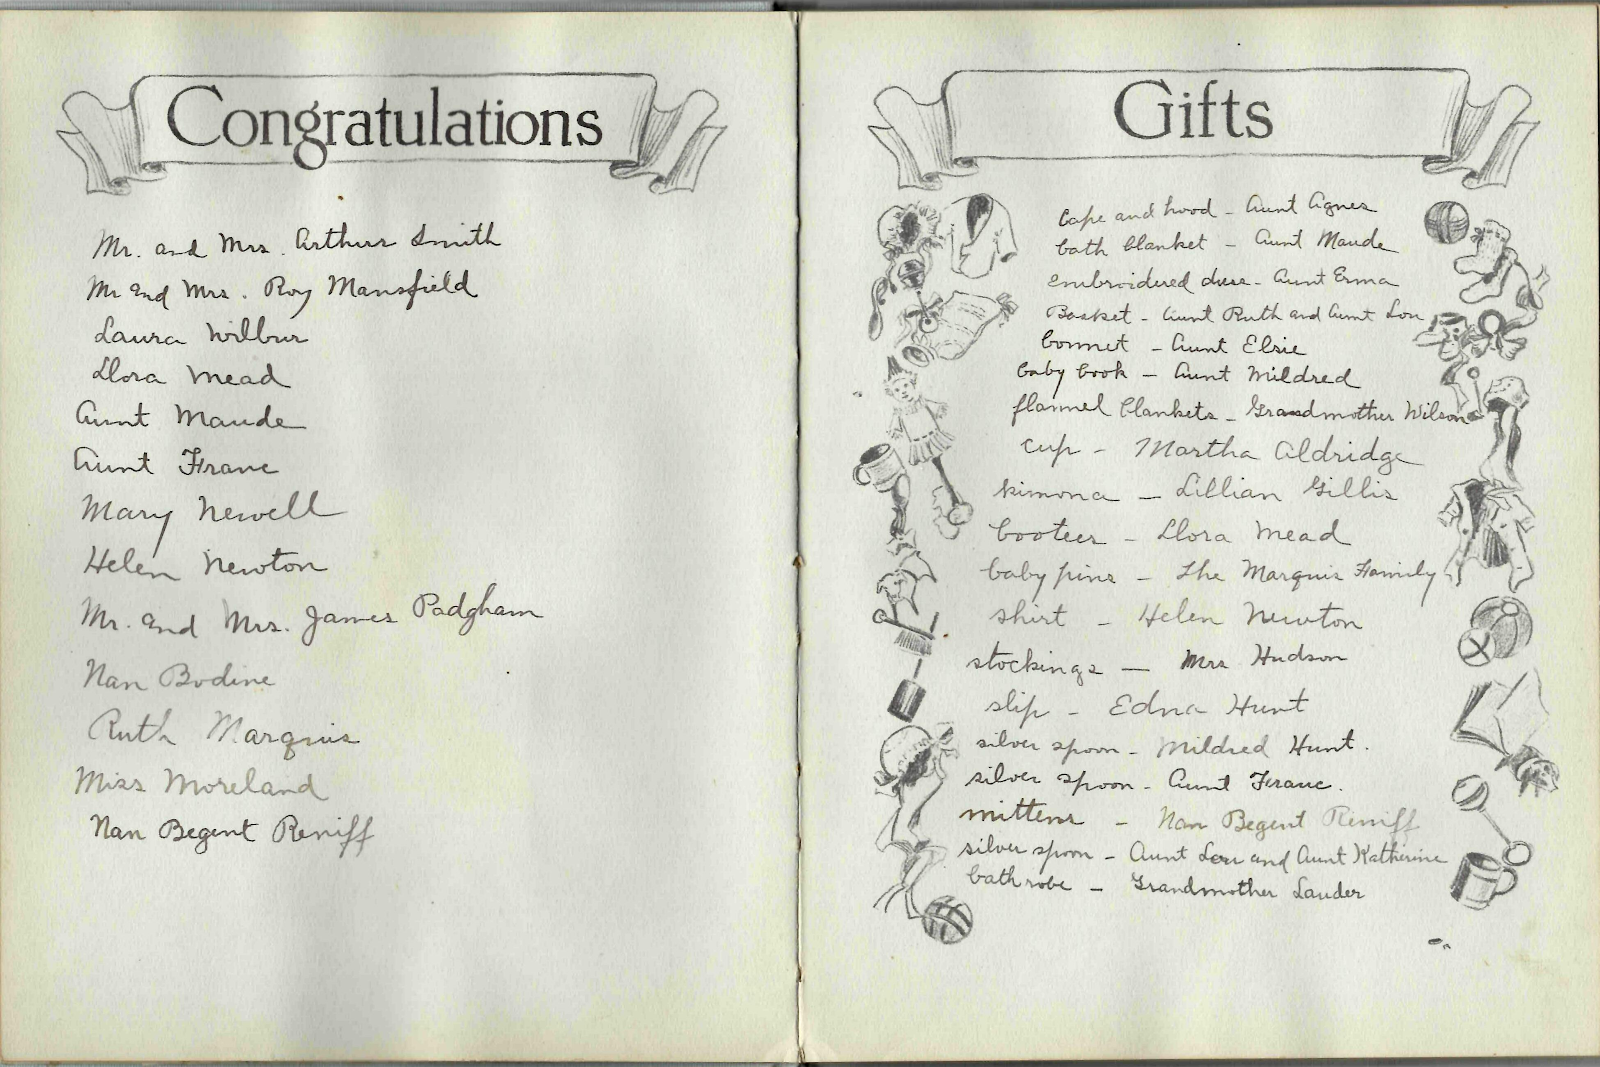 Congratulations
Mr. and Mrs. Arthur Smith
Mr and Mrs. Roy Mansfield
Laura Wilbur
Llora Mead
Aunt Maude
Aunt Franc
Mary Newell
Helen Newton
Mr. and Mrs. James Padgham
Nan Bodine
Ruth Marquis
Miss Moreland
Nan Begent Reniff
Gifts
Cape and hood - Aunt Agnes
bath blanket - Aunt Maude
embroidered dress - Aunt Erma
Basket - Aunt Ruth and Aunt Lou
bonnet - Aunt Elsie
baby book - Aunt Mildred
flannel blankets - Grandmother Wilson
cup - Martha Aldridge
kimona - Lillian Gillis
bootees - Llora Mead
baby pins - The Marquis Family
shirt - Helen Newton
stockings - Mrs Hudson
slip - Edna Hunt
silver spoon - Mildred Hunt.
silver spoon - Aunt Franc.
mittens - Nan Begent Reniff
silver spoon - Aunt Lou and Aunt Katherine
bath robe - Grandmother Lauder